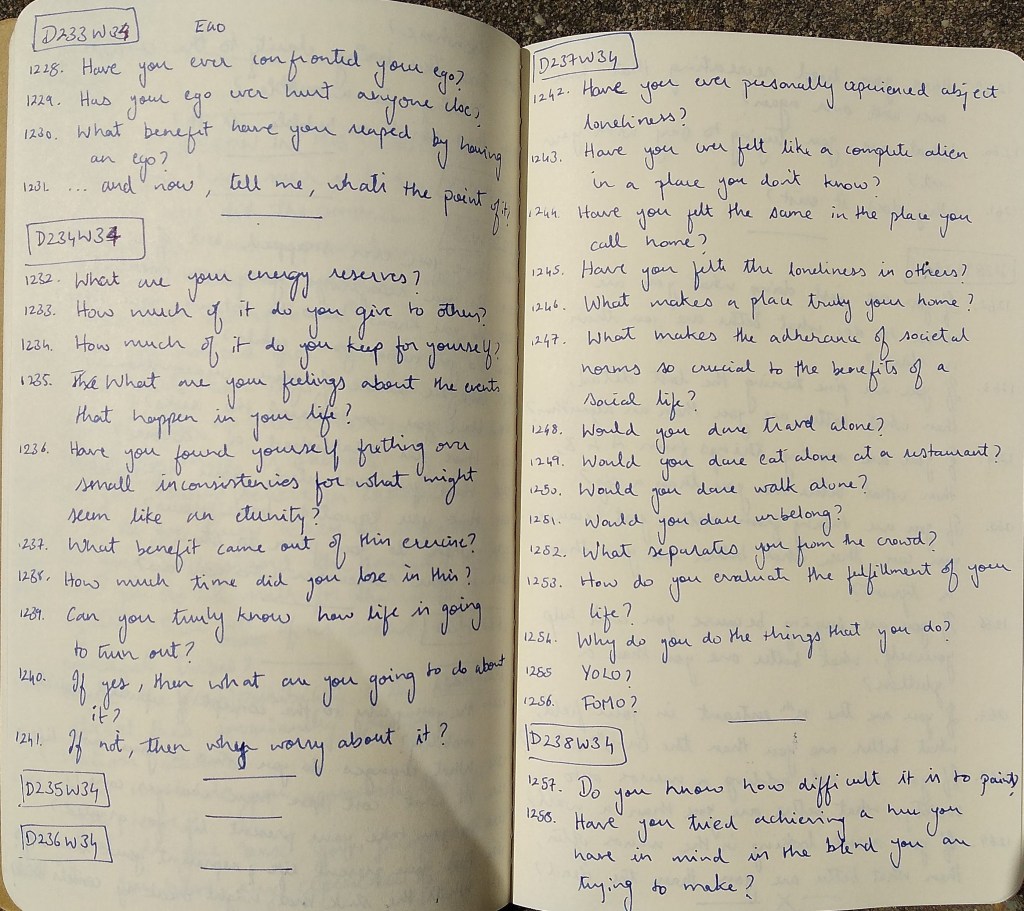 D233W34 EGO
1228. Have you ever confronted your ego?
1229. Has your ego ever hurt anyone else?
1230. What benefit have you reaped by having
an ego?
1231. ... and now, tell me, what's the point of it?
D234W34
1232. What are your energy reserves?
1233. How much of it do you give to others?
1234. How much of it do you keep for yourself?
1235. What are your feelings about the events
that happen in your life?
1236. Have you found yourself fretting over
small inconsistencies for what might
seem like an eternity?
1237. What benefit came out of this exercise?
1238. How much time did you lose in this?
1239. Can you truly know how life is going
to turn out?
1240. If yes, then what are you going to do about
it?
1241. If not, then why worry about it?
D235W34
D236W34
D237W34
1242. Have you ever personally experienced abject
loneliness?
1243. Have you ever felt like a complete alien
in a place you don't know?
1244. Have you felt the same in the place you
call home?
1245. Have you felt the loneliness in others?
1246. What makes a place truly your home?
1247. What makes the adherance of societal
norms so crucial to the benefits of a
social life?
1248. Would you dare travel alone?
1249. Would you dare eat alone at a restaurant?
1250. Would you dare walk alone?
1251. Would you dare unbelong?
1252. What separates you from the crowd?
1253. How do you evaluate the fulfillment of your
life?
1254. Why do you do the things that you do?
1255 YOLO?
1256. FOMO?
D238W34
1257. Do you know how difficult it is to paint?
1258. Have you tried achieving a hue you
have in mind in the blend you are
trying to make?